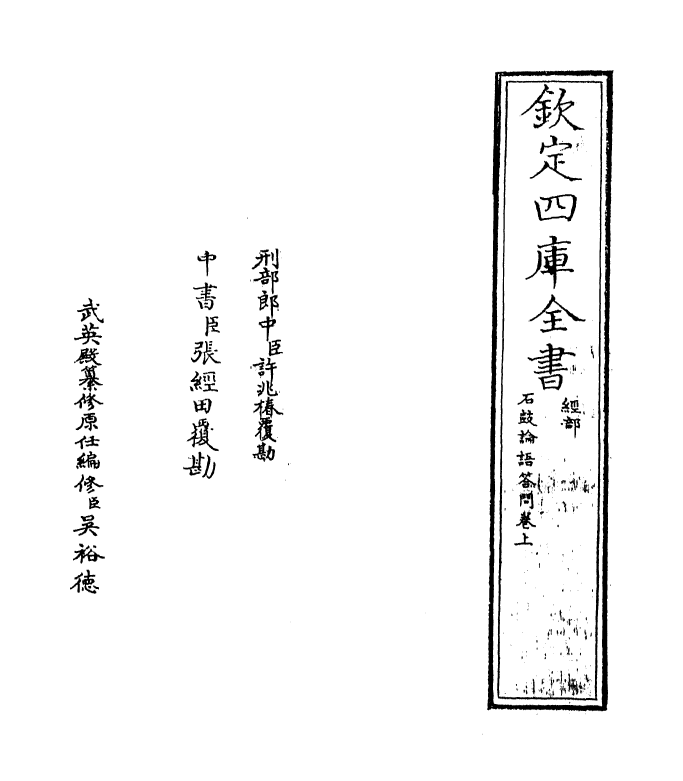 欽定四庫全書
經部
石鼓論語答問卷上
刑部郎中臣許兆椿覆勘
中書臣張經田覆勘
武英殿纂修原任編修臣吳裕德